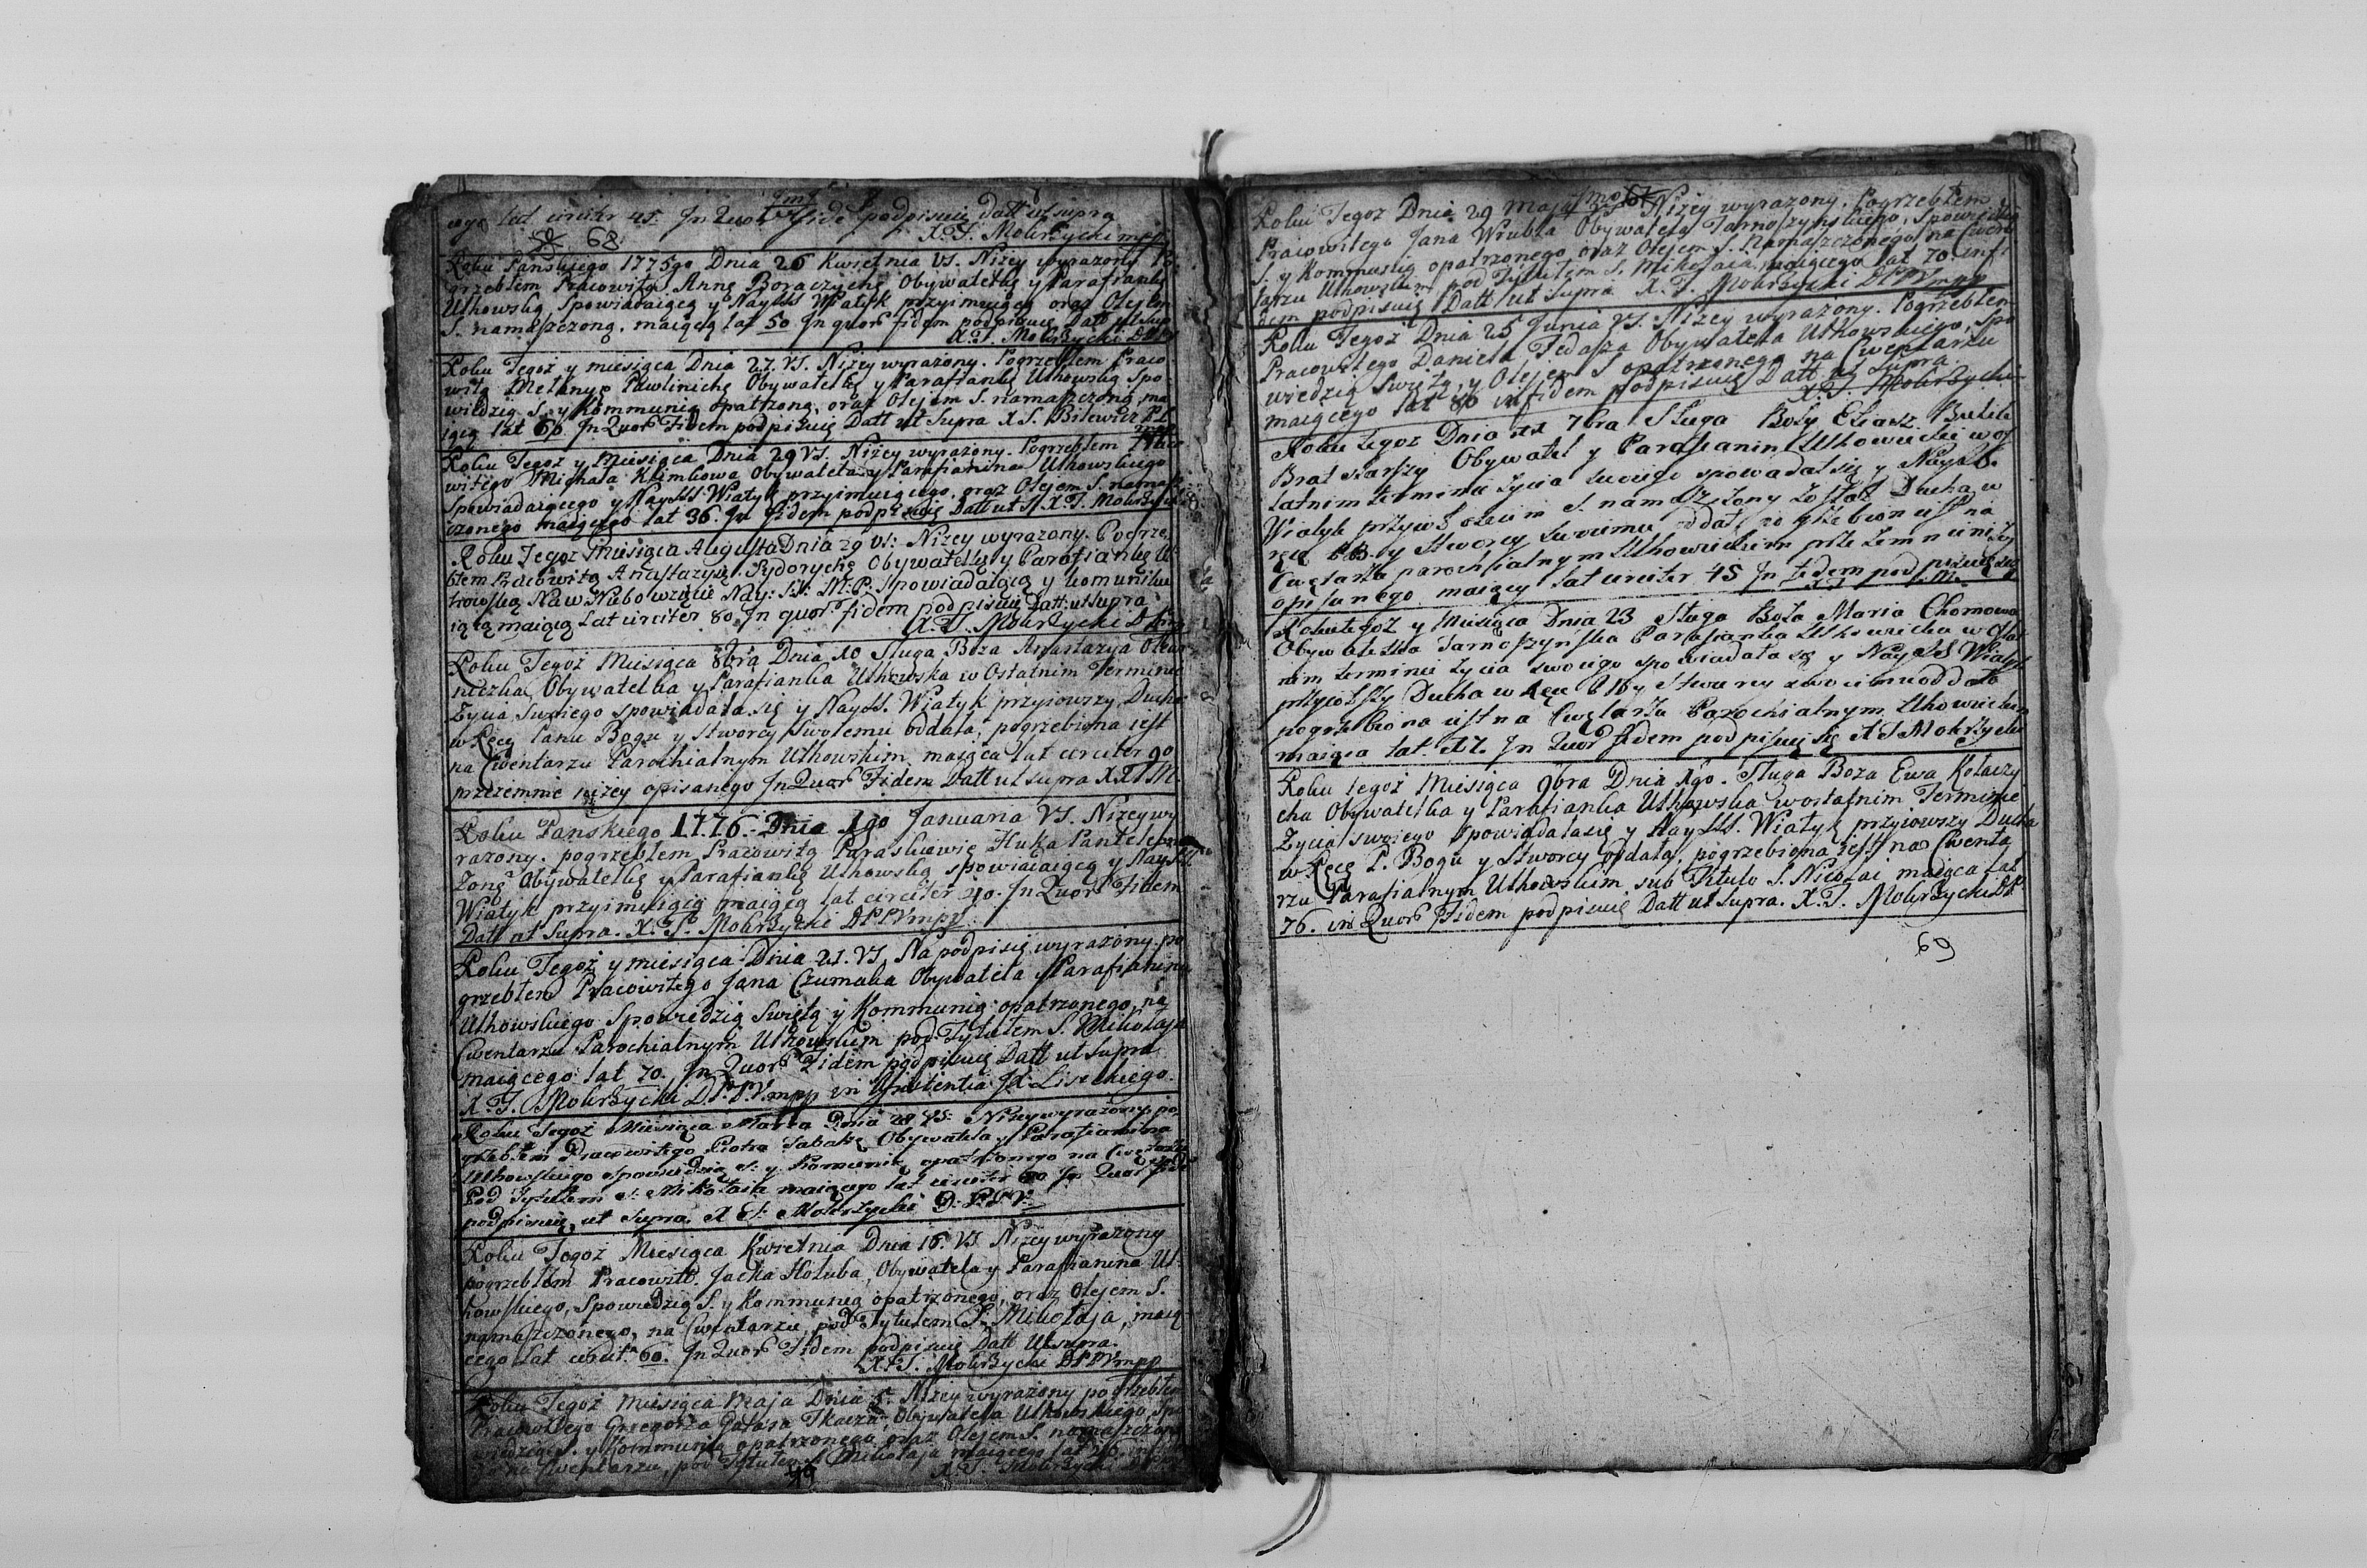 ego lat circiter 45. In Quor Fidē podpisuię Datt ut supra
X. T. Mokrzycki mpp
68
Roku Pańskiego 1775go Dnia 26 Kwietnia VS. Niżey wyrażony Po
grzebłem Pracowitą Annę Boraczychę Obywatelkę y Parafiankę
Uhowską, Spowiadaiącą y Nayśśś Wiatyk przyimuiącą oraz Olejem
S. namaszczoną, maiącą lat 50 In quor fidem podpisuię Datt ut sup
X. T. Mokrzycki DPPV
Roku Tegoż y miesiąca Dnia 27. VS. Niżey wyrażony. Pogrzebłem Praco
witą Melanyę Pawlinichę Obywatelkę y Parafiankę Uhowską Spo
wiedzią S. y Kommunią opatrzoną, oraz Olejem S. namaszczoną ma
iącą lat 60 In Quor Fidem podpisuię Datt ut Supra X S. Bilewicz
Roku Tegoż y Miesiąca Dnia 29 VS. Niżey wyrażony. Pogrzebłem Praco
witego Michała Klimkowa Obywatela y Parafianina Uhowskiego
Spowiadaiącego y Nayśśś Wiatyk przyimuiącego, oraz Olejem S. namasz
czonego maiącego lat 36. In fidem podpisuię Datt ut S. X. T. Mokrzycki
Roku Tegoż Miesiąca Augusta Dnia 29 VS: Niżey wyrażony. Pogrze
błem Pracowitą Anastazyę Sydorychę Obywatelkę y Parafiankę U
howską Na w Niebowzięcie Nay: S: M: P: Spowiadaiącą y komuniku
iącą maiącą Lat circiter 80. In quor fidem podpisuię Datt: ut supra
X. T. Mokrzycki D
Roku Tegoż Miesiąca 8bra Dnia 10 Sługa Boża Anastazya
niczka, Obywatelka y Parafianka Uhowska w Ostatnim Terminie
Życia Swoiego spowiadała się y Nayśś. Wiatyk przyiowszy Ducha
w Ręcę Panu Bogu y Stworcy Swoiemu oddała, pogrzebiona iest
na Cwentarzu Parochialnym Uhowskim maiąca lat circiter 90
przezemnie niżey opisanego In Quor Fidem Datt ut supra X T M.
Roku Pańskiego 1776. Dnia 1go Januaria VS. Niżey wy
rażony. pogrzebłem Pracowitą Paraskiewię Huka
Żonę Obywatelkę y Parafiankę Uhowską spowiadaiącą y Nayśśś
Wiatyk przyimuiącą maiącą lat circiter 40. In Quor Fidem
Datt ut Supra. X. T. Mokrzycki DPPV mpp
Roku Tegoż y miesiąca Dnia 21. VS. Na podpisię wyrażony po
grzebłem Pracowitego Jana Czumaka Obywatela y Parafianina
Uhowskiego Spowiedzią Swiętą y Kommunią opatrzonego, na
Cwentarzu Parochialnym Uhowskim pod Tytułem S. Mikołaja
maiącego lat 70. In Quor Fidem podpisuię Datt ut supra
X. T. Mokrzycki D. P. P. V. mpp in
Roku Tegoż Miesiąca Marca Dnia 28 VS: Niżey wyrażony po
grzebłem Pracowitego Piotra Sabakę Obywatela y Parafianina
Uhowskiego Spowiedzią S: y Komunią opatrzonego na Cwętarzu
Pod Tytułem S: Mikołaia maiącego lat circiter 60 In Quor fide
podpisuię ut Supra X T: Mokrzycki D: P: P: V:
Roku Tegoż Miesiąca Kwietnia Dnia 16. VS Niżey wyrażony
pogrzebłem Pracowite. Jacka Hołuba, Obywatela y Parafianina U
howskiego, Spowiedzią S. y Kommunią opatrzonego, oraz Olejem S.
namaszczonego, na Cwentarzu, pod Tytułem S. Mikołaja, maią
cego Lat circit. 60. In Quor Fidem podpisuię Datt Ut supra.
X. T. Mokrzycki DPPV mpp
Roku Tegoż Miesiąca Maja Dnia 5. Niżey wyrażony pogrzebłem
Pracowitego Grzegorza Tkacza, Obywatela Uhowskiego, Spo
wiedzią S. y Kommunią opatrzonego oraz Olejem S. namaszczone
go na Cwentarzu, pod Tytułem S. Mikołaja maiącego lat 26. in
X. T. Mokrzycki
Roku Tegoż Dnia 29 Maja VS Niżey wyrażony. Pogrzebłem
Pracowitego Jana Wrubla Obywatela Tarnoszynskiego, Spowiedzią
S. y Kommunią opatrzonego oraz Olejem S. Namaszczonego na Cwen
tarzu Uhowskim pod Tytułem S. Mikołaia, maiącego lat 70. in fi
dem podpisuię Datt ut Supra X. T. Mokrzycki DPPV mpp
Roku Tegoż Dnia 25 Junia VS. Niżey wyrażony. Pogrzebłem
Pracowitego Daniela Fedasza Obywatela Uhowskiego, Spo
wiedzią Swiętą, y Olejem S opatrzonego na Cwentarzu
maiącego lat 80 in fidem podpisuię Datt ut Supra.
X. T. Mokrzycki
Roku tegoż Dnia 7bra Sługa Boży Eliasz
Brat starszy Obywatel y Parafianin Uhowiecki w os
tatnim terminie życia swoiego spowiadał się y Nayśś.
Wiatyk przyioł oleiem S. namaszczony został Ducha w
ręce P.B. y Stworcy swoiemu oddał, pogrzebion iest na
Cwętarzu parochialnym Uhowieckim przezemnie niży
opisanego maiący lat circiter 45 In fidem podpisuię się
Roku tegoż y Miesiąca Dnia 23 Sługa Boża Maria Chomowa
Obywatelka Tarnoszyńska Parafianka Uhowiecka w Ostat
nim terminie życia swoiego spowiadała się y Nayśś Wiatyk
przyiołszy Ducha w Ręce P B y Stworcy swoiemu oddała
pogrzebiona iest na Cwętarzu Parochialnym Uhowieckim
maiąca lat. In Quor fidem podpisuię się X T Mokrzycki
Roku tegoż Miesiąca 9bra Dnia 1go. Sługa Boża Ewa Kołaczy
cha Obywatelka y Parafianka Uhowska w ostatnim Terminie
Życia swoiego Spowiadała się y Nayśśś. Wiatyk przyiowszy Ducha
w Ręcę P. Bogu y Stworcy oddała, pogrzebiona iest na Cwenta
rzu Parafialnym Uhowskim sub Titulo S. Nicolai maiąca lat
76. in Quor Fidem podpisuię Datt ut Supra. X. T. Mokrzycki DP
69